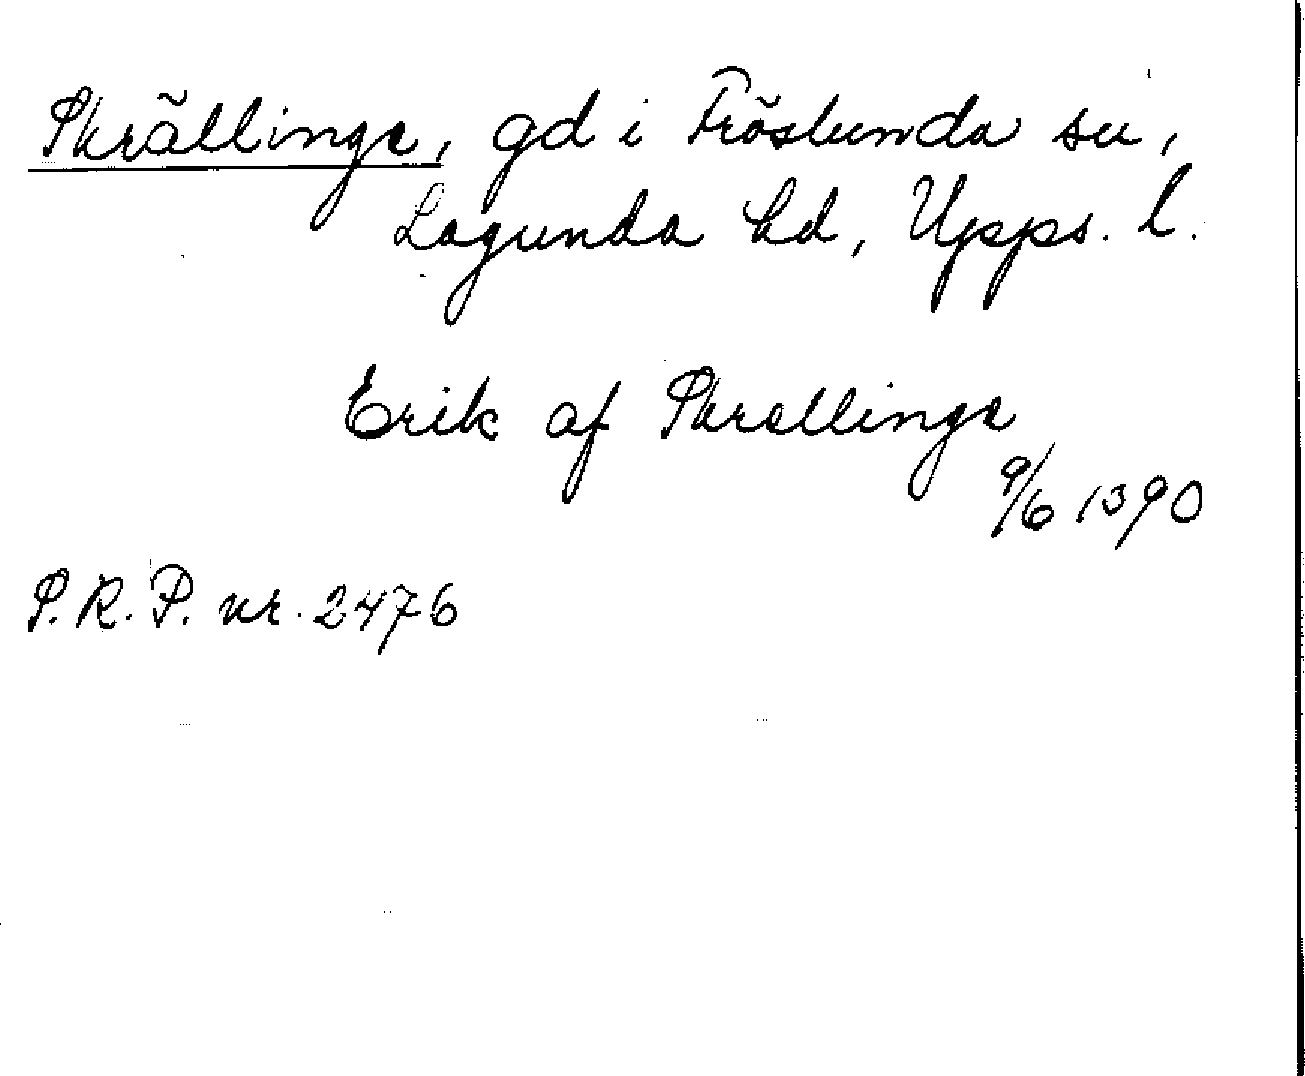 Skrällinge, gd i Fröslunda sn,
Lagunda hd, Upps. l.
Erik af Skrellinge
9/6 1390
S.R.P. nr. 2476